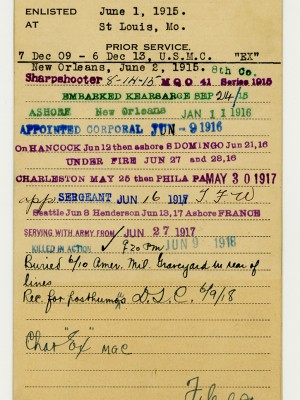 ENLISTED June 1, 1915.
AT St Louis, Mo.
PRIOR SERVICE.
7 Dec 09 - 6 Dec 13, U.S.M.C. "EX"
New Orleans, June 2, 1915. 8th Co.
Sharpshooter 8-14-15 M Q O. 41 Series 1915
EMBARKED KEARSARGE SEP 24/15
ASHORE New Orleans JAN 11 1916
APPOINTED CORPORAL JUN -9 1916
On HANCOCK Jun 12 then ashore S DOMINGO Jun 21, 16
UNDER FIRE JUN 27 and 28, 16
CHARLESTON MAY 25 then PHILA PA MAY 30 1917
app SERGEANT JUN 16 1917 T.F.W
Seattle Jun 8 Henderson Jun 13, 17 Ashore FRANCE
SERVING WITH ARMY FROM JUN 27 1917
KILLED IN ACTION ✓ 920 PM JUN 9 1918
Buried 6/10 Amer. Mil. Graveyard in rear of
lines
Rec. for posthumus D.S.C. 6/9/18
Char "Ex" MGC